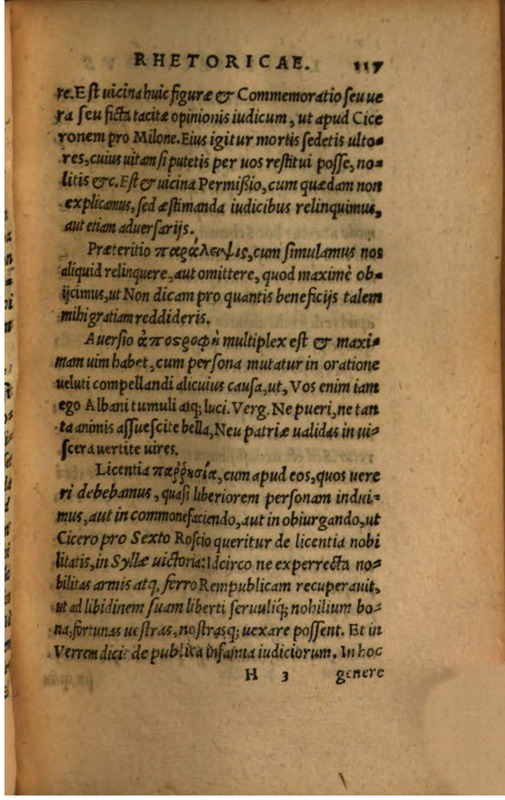 RHETORICAE. 117
re. Est uicina huic figuræ & Commemoratio seu ue
ra seu ficta tacitæ opinionis iudicum, ut apud Cice
ronem pro Milone. Eius igitur mortis sedetis ulto-
res, cuius uitam si putetis per uos restitui posse, no-
litis &c. Est & uicina Permißio, cum quædam non
explicamus, sed æstimanda iudicibus relinquimus,
aut etiam aduersarijs.
Præteritio παράλειψις, cum simulamus nos
aliquid relinquere, aut omittere, quod maximè ob-
ijcimus, ut Non dicam pro quantis beneficijs talem
mihi gratiam reddideris.
Auersio ἀποστροφὴ multiplex est & maxi-
mam uim habet, cum persona mutatur in oratione
ueluti compellandi alicuius causa, ut, Vos enim iam
ego Albani tumuli atq; luci. Verg. Ne pueri, ne tan
ta animis assuescite bella, Neu patriæ ualidas in ui-
scera uertite uires.
Licentia παῤῥησία, cum apud eos, quos uere
ri debebamus, quasi liberiorem personam indui-
mus, aut in commonefaciendo, aut in obiurgando, ut
Cicero pro Sexto Roscio queritur de licentia nobi
litatis, in Syllæ uictoria: Idcirco ne experrecta no-
bilitas armis atq, ferro Rempublicam recuperauit,
ut ad libidinem suam liberti seruuliq; nobilium bo-
na, fortunas uestras, nostrasq; uexare possent. Et in
Verrem dicit de publica infamia iudiciorum. In hoc
H 3 genere